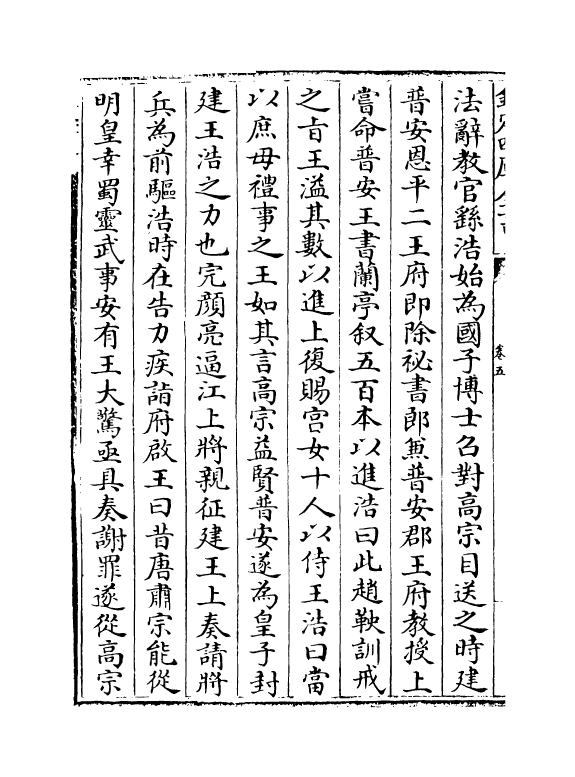 卷五
法辭教官繇浩始為國子博士召對高宗目送之時建
普安恩平二王府即除祕書郎兼普安郡王府教授上
嘗命普安王書蘭亭叙五百本以進浩曰此趙鞅訓戒
之㫖王溢其數以進上復賜宫女十人以侍王浩曰當
以庶母禮事之王如其言高宗益賢普安遂為皇子封
建王浩之力也完顔亮逼江上將親征建王上奏請將
兵為前驅浩時在告力疾詣府啟王曰昔唐肅宗能從
明皇幸蜀靈武事安有王大驚亟具奏謝罪遂從高宗